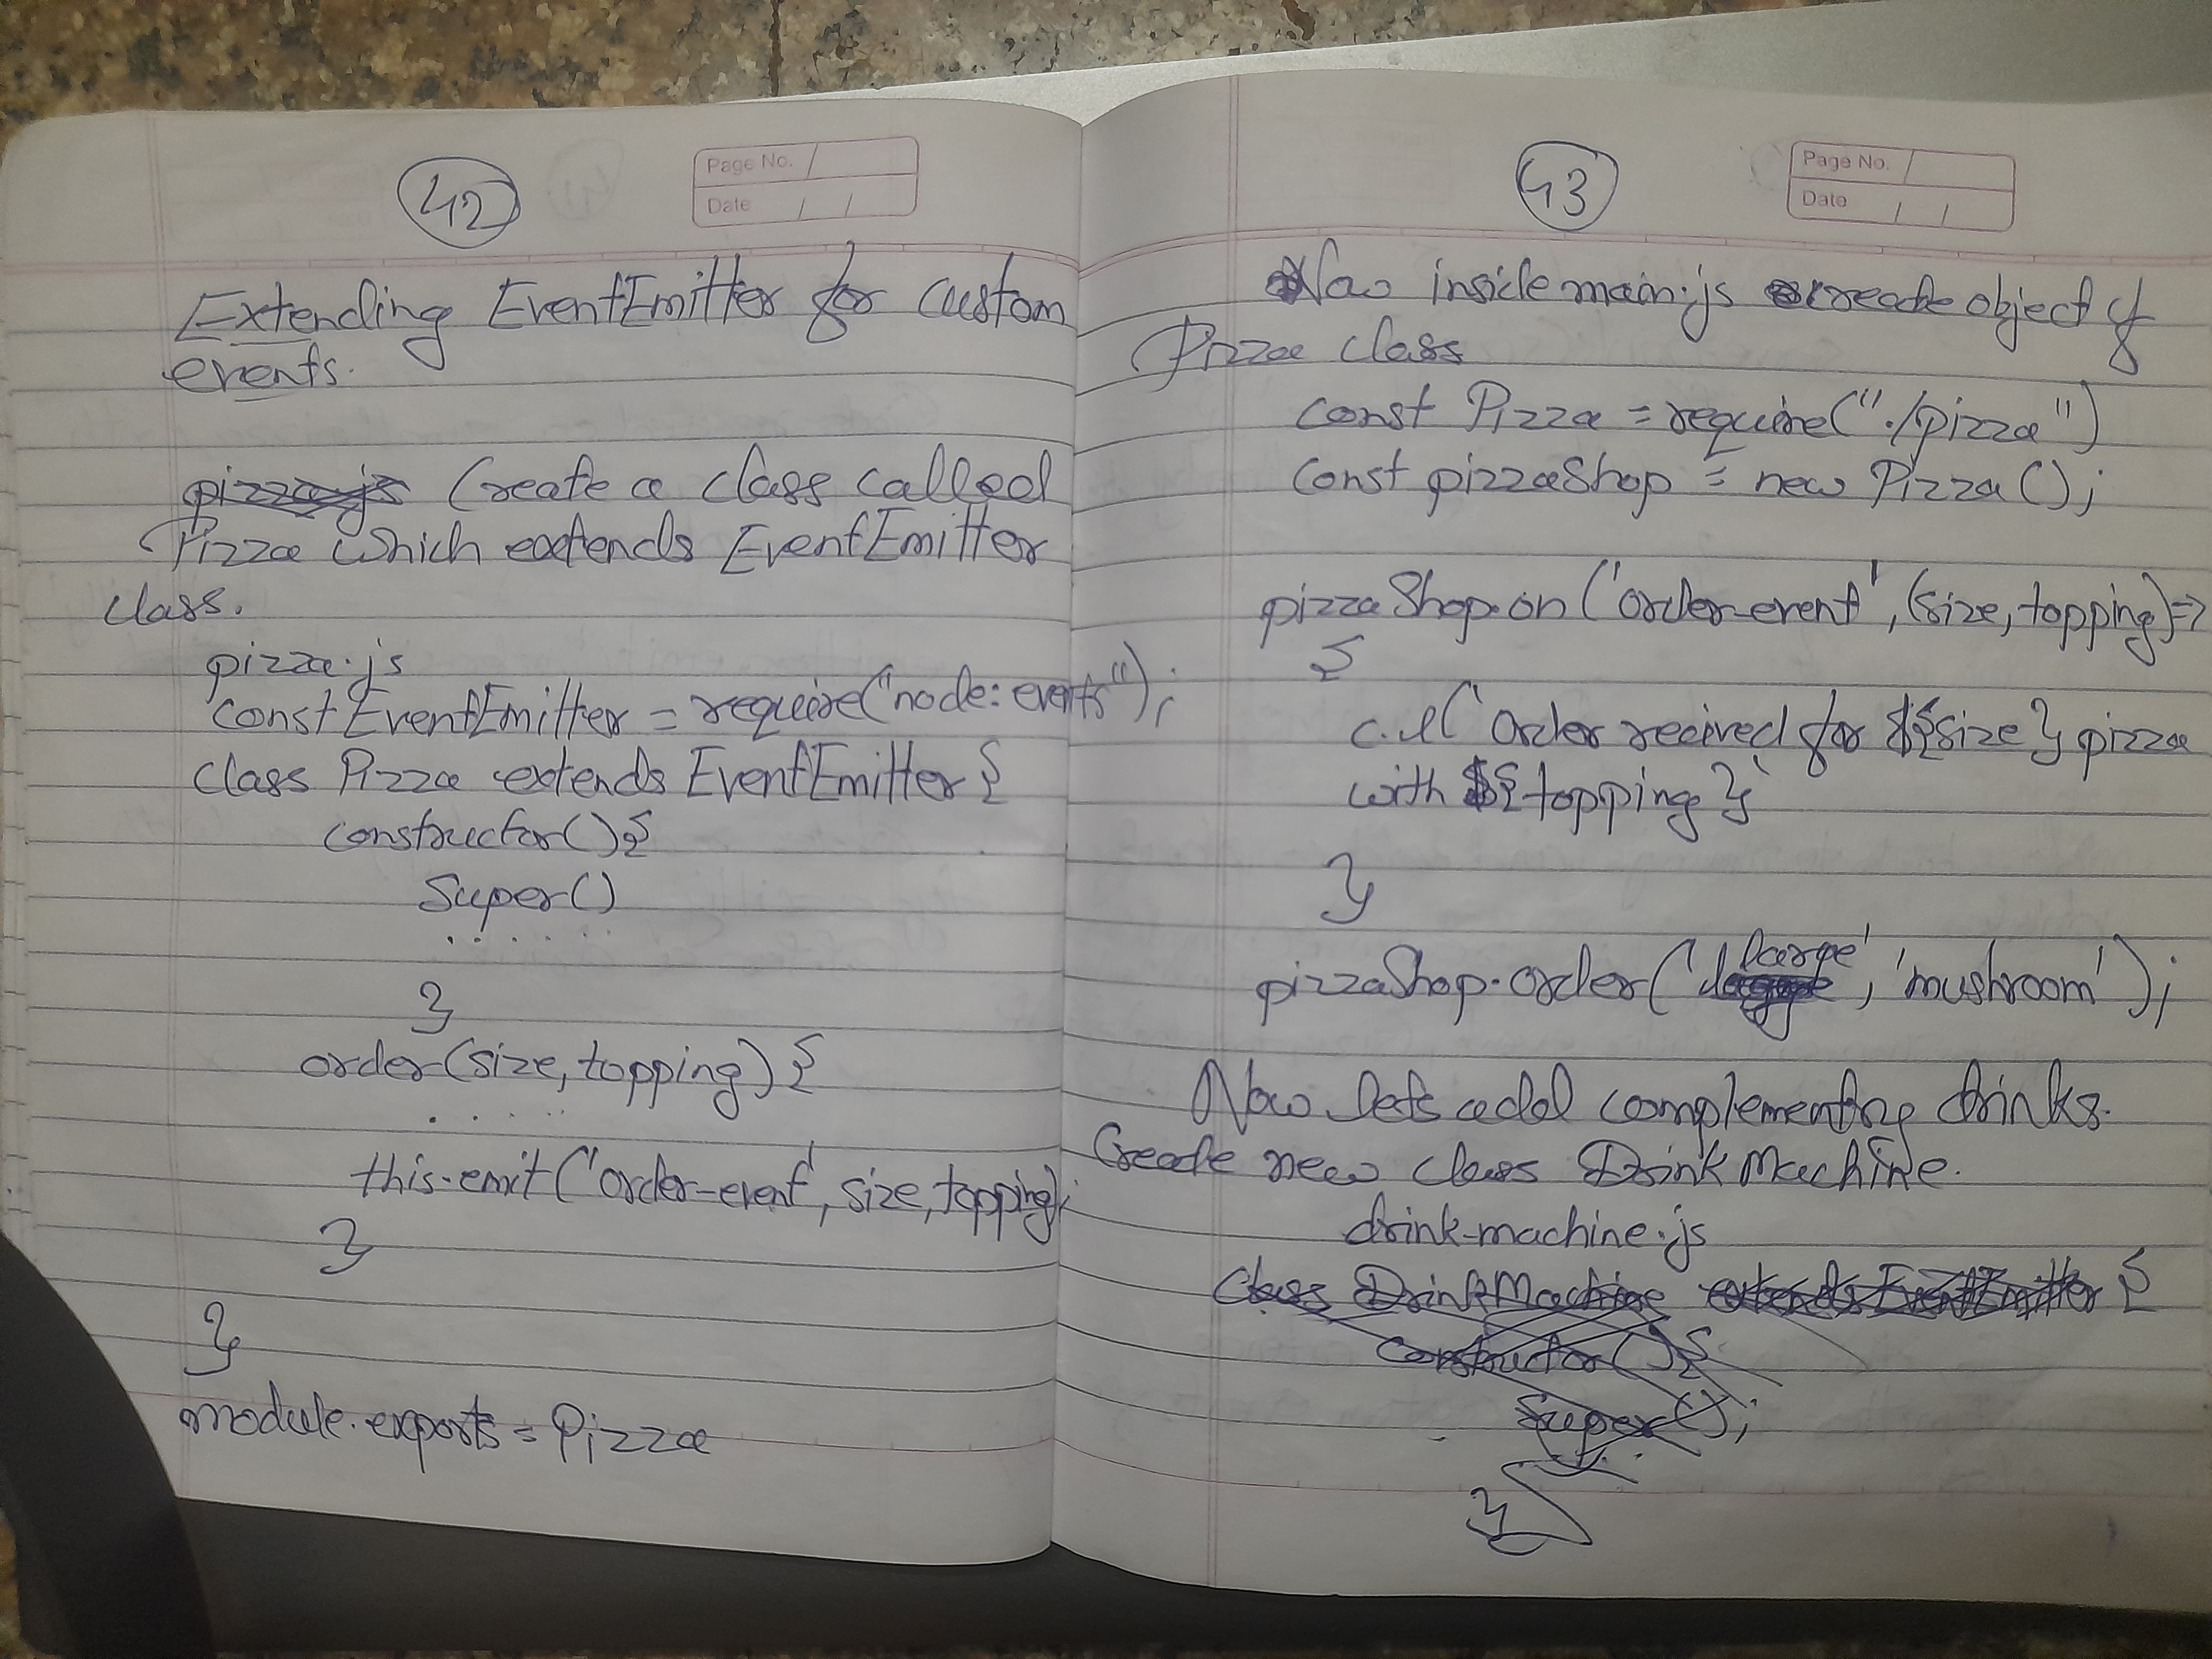 42
Page No.
Date
Extending EventEmitter for Custom
events.
pizza.js Create a class called
Pizza which extends EventEmitter
class.
pizza.js
const EventEmitter = require("node:events");
class Pizza extends EventEmitter {
constructor(){
super()
......
}
order(size, topping) {
......
this.emit('order-event', size, topping);
}
}
module.exports = Pizza
43
Page No.
Date
Now inside main.js create object of
Pizza class
const Pizza = require("./pizza")
const pizzaShop = new Pizza();
pizzaShop.on('order-event', (size, topping) =>
{
c.l(`Order recived for ${size} pizza
with ${topping}`
}
large
pizzaShop.order('', 'mushroom');
Now lets add complementry drinks.
Create new class DrinkMachine.
drink-machine.js
class DrinkMachine extends EventEmitter {
constructor(){
super();
...
}